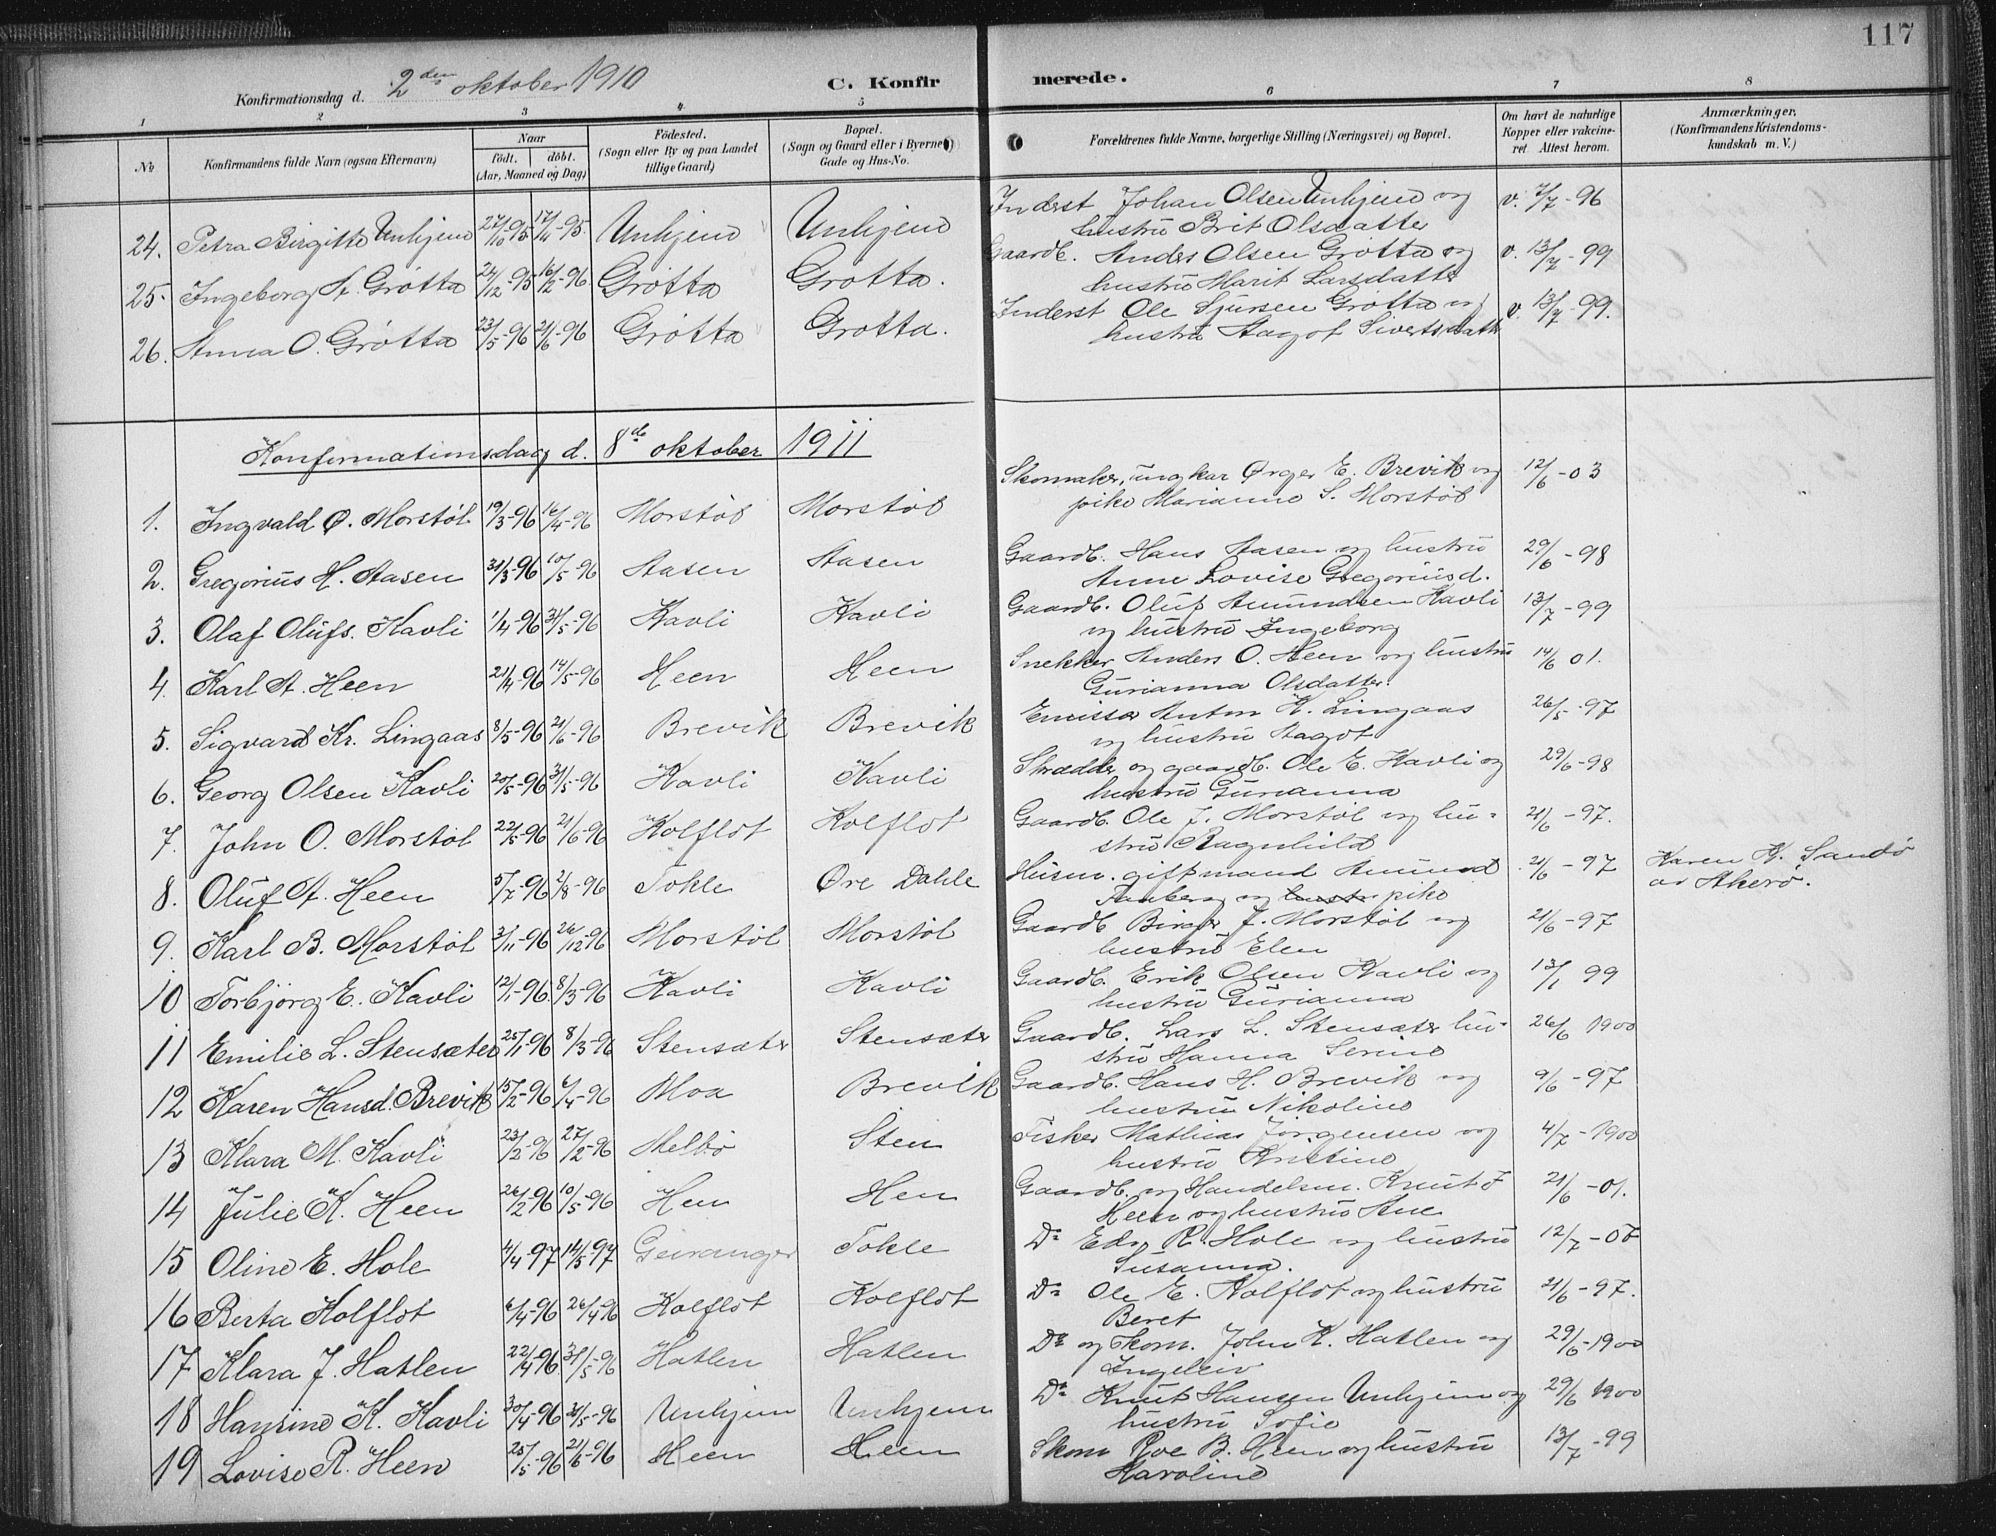 117
Konfirmationsdag d. 2den oktober 1910 C. Konfir merede.
1 2 3 4 5 6 7 8
No. Konfirmandens fulde Navn (ogsaa Efternavn) Naar födt. döbt. (Aar, Maaned og Dag) Födested. (Sogn eller By og paa Landet tillige Gaard) Bopæl. (Sogn og Gaard eller i Byerne Gade og Hus-No.) Forældrenes fulde Navne, borgerlige Stilling (Næringsvei) og Bopæl. Om havt de naturlige Kopper eller vakcineret Attest herom. Anmærkninger. (Konfirmandens Kristendomskundskab m. V.)
24. Petra Birgitte Unhjend 27/10-95 17/11-95 Unhjend Unhjend Inderst Johan Olsen Unhjend og v. 7/7-96
hustru Brit Olsdatter
25. Ingeborg A. Gròtta 24/12-95 16/2-96 Gròtta Grotta. Gaardb. Andes Olsen Grotta og v. 13/7-99
hustru Marit Larsdatter
26. Anna O. Gròtta 23/5-96 21/6-96 Gròtta Grotta. Inderst Ole Sjursen Gròtta og v. 13/7-99.
hustru Aagot Sivertsdatt
Konfirmationsdag d. 8de oktober 1911
1. Ingvald Ø. Morstøl 19/3-96 16/4-96 Morstøl Morstøl Skomaker, ungkar Ørger E. Brevik og 12/6-03
pike Marianne S. Morstøl
2. Gregorius H. Aasen 31/3-96 10/5-96 Aasen Aasen Gaardb. Hans Aasen og hustru 29/6-98
Anne Lovise Gregoriusd.
3. Olaf Olufs. Kavli 1/4-96 31/5-96 Kavli Kavli Gaardb. Oluf Amundsen Kavli 13/7-99
og hustru Ingeborg
4. Karl A. Heen 21/4-96 14/5-96 Heen Heen Snekker Anders O. Heen og hustru 14/6 01.
Gurianna Olsdatter.
5. Sigvard Kr. Lingaas 8/5-96 21/6-96 Brevik Brevik Emissær Anton K. Lingaas 26/5-97
og hustru Aagot
6. Georg Olsen Kavli 20/5-96 31/5-96 Kavli Kavli Skrædder og gaardb. Ole E. Kavli og 29/6-98
hustru Gurianna
7. John O. Morstøl 22/5-96 21/6-96 Kolfløt Kolfløt Gaardb. Ole J. Morstøl og hu- 21/6-97.
stru Ragnhild
8. Oluf A. Heen 5/7-96 2/8-96 Tokle Øre Dahle Husm. gift mand Amund 21/6-97 Karen K. Sandø
og pike av Akerø.
9. Karl B. Morstøl 3/11-96 26/12-96 Morstøl Morstøl Gaardb. Birger J. Morstøl og 21/6-97
hustru Elen
10 Torbjørg E. Kavli 12/1-96. 8/3-96 Kavli Kavli Gaardb. Erik Olsen Kavli og 13/1 99
hustru Gurianna
11 Emilie L. Stensæter 25/1-96 8/3-96 Stensæter Stensæter Gaardb. Lars L. Stensæter hu- 26/6 1900
stru Hanna Serine
12 Karen Hansd. Brevik 15/2-96 6/4-96 Moa Brevik Gaardb. Hans H. Brevik og 9/6-97
hustru Nikoline
13 Klara M. Kavli 23/2-96 27/2-96 Melbø Sten Fisker Mathias Jørgensen og 4/7-1900
hustru Kristine
14 Julie K. Heen 26/2-96 10/5-96 Hen Hen Gaardb. og Handelsm. Knut J 21/6-01.
Heen og hustru Ane
15 Oline E. Hole 4/4-97 14/5-97 Geiranger Tokle Do Edv. R. Hole og hustru 12/7-07
Susanna.
16 Berta Kolfløt 6/4-96 26/4-96 Kolfløt Kolfløt Do Ole E. Kolfløt og hustru 21/6-97.
Beret
17 Klara J. Hatlen 22/4-96. 31/5-96 Hatlen Hatlen Do og Skom. John K. Hatlen og 29/6-1900
Ingeleiv
18 Hansine K. Kavli 30/4-96 31/5-96 Unhjem Unhjem Do Knut Hansen Unhjem og 29/6 1900
hustru Sofie
19 Lovise R. Heen 25/5-96 21/6-96 Heen Heen Skom Roe B. Heen og hustru 13/7-99
Karoline